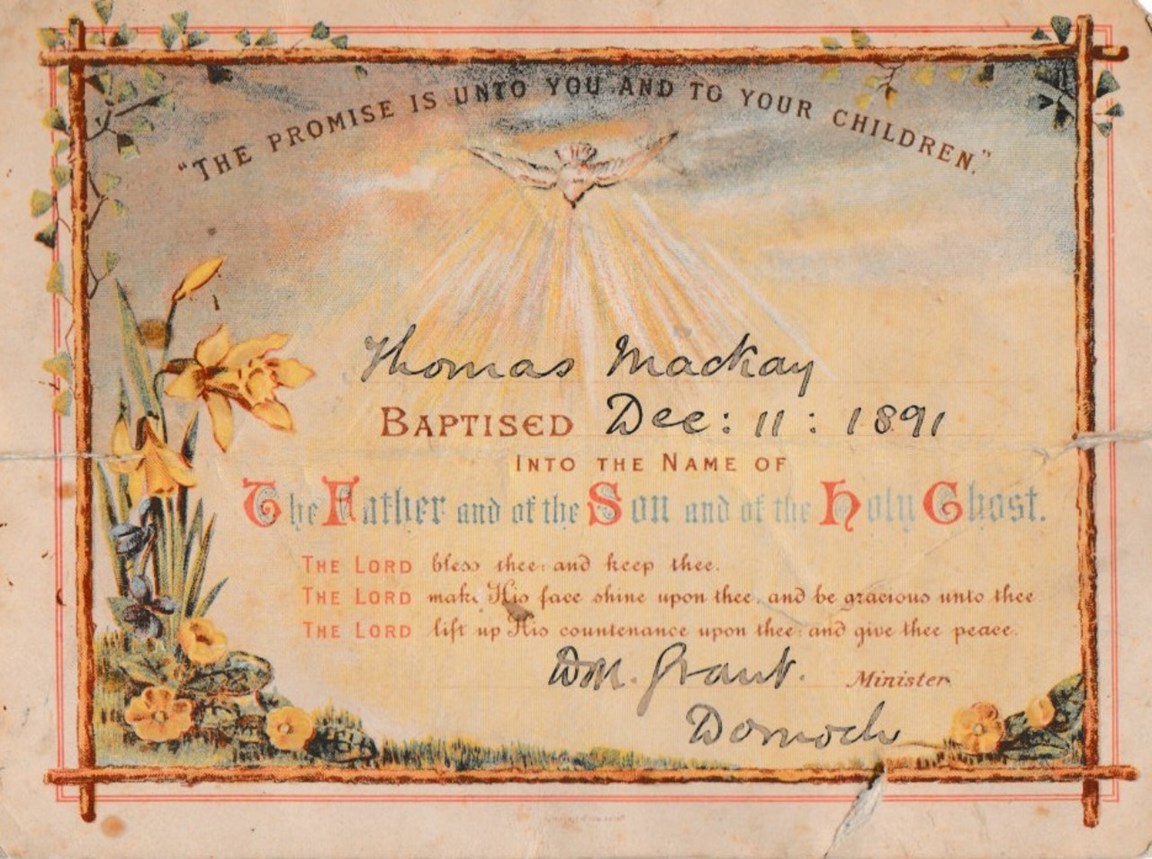 "THE PROMISE IS UNTO YOU AND TO YOUR CHILDREN."
Thomas Mackay
BAPTISED Dec: 11: 1891
INTO THE NAME OF
The Father and of the Son and of the Holy Ghost.
THE LORD bless thee: and keep thee.
THE LORD make His face shine upon thee, and be gracious unto thee
THE LORD lift up His countenance upon thee: and give thee peace.
DM. Grant. Minister
Dornoch